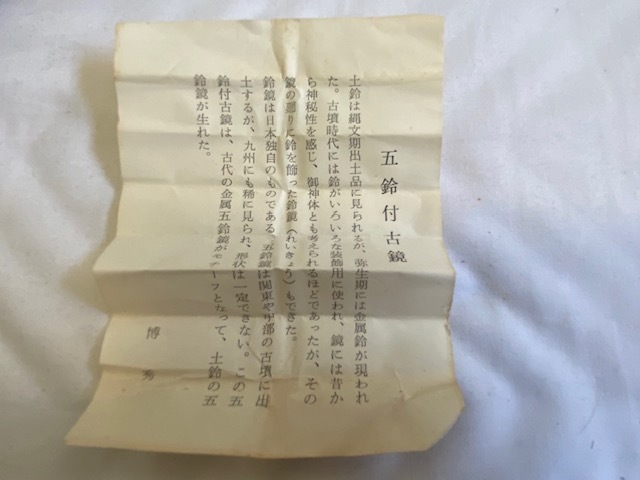 五鈴付古鏡
土鈴は縄文期出土品に見られるが、弥生期には金属鈴が現われ
た。古墳時代には鈴がいろいろな装飾用に使われ、鏡には昔か
ら神秘性を感じ、御神体とも考えられるほどであったが、その
鏡の廻りに鈴を飾った鈴鏡（れいきょう）もできた。
鈴鏡は日本独自のものである。五鈴鏡は関東や中部の古墳に出
土するが、九州にも稀に見られ、形状は一定できない。この五
鈴付古鏡は、古代の金属五鈴鏡がモチーフとなって、土鈴の五
鈴鏡が生れた。
博秀